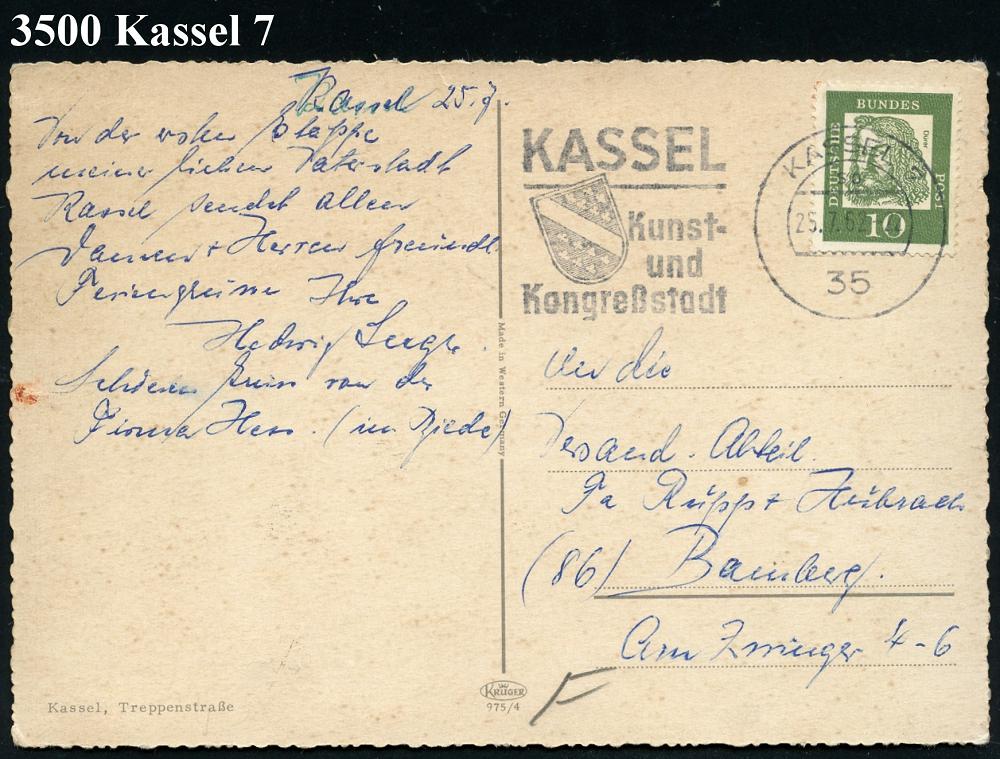 3500 Kassel 7
Kassel 25.7.
Von der ersten Etappe
meiner lieben Vaterstadt
Kassel sendet allen
Damen + Herren freundl.
Feriengrüsse Ihre
Hedwig
Schönen Gruss von der
Firma Hess. (in
Kassel, Treppenstraße
Made in Western Germany
KRÜGER
975/4
KASSEL
Kunst-
und
Kongreßstadt
KASSEL 7
25.7.62
35
DEUTSCHE
BUNDES
POST
Dürer
10
An die
Versand. Abteil.
Fa Rupp +
(86) Bamberg.
Am Zwinger 4-6
F